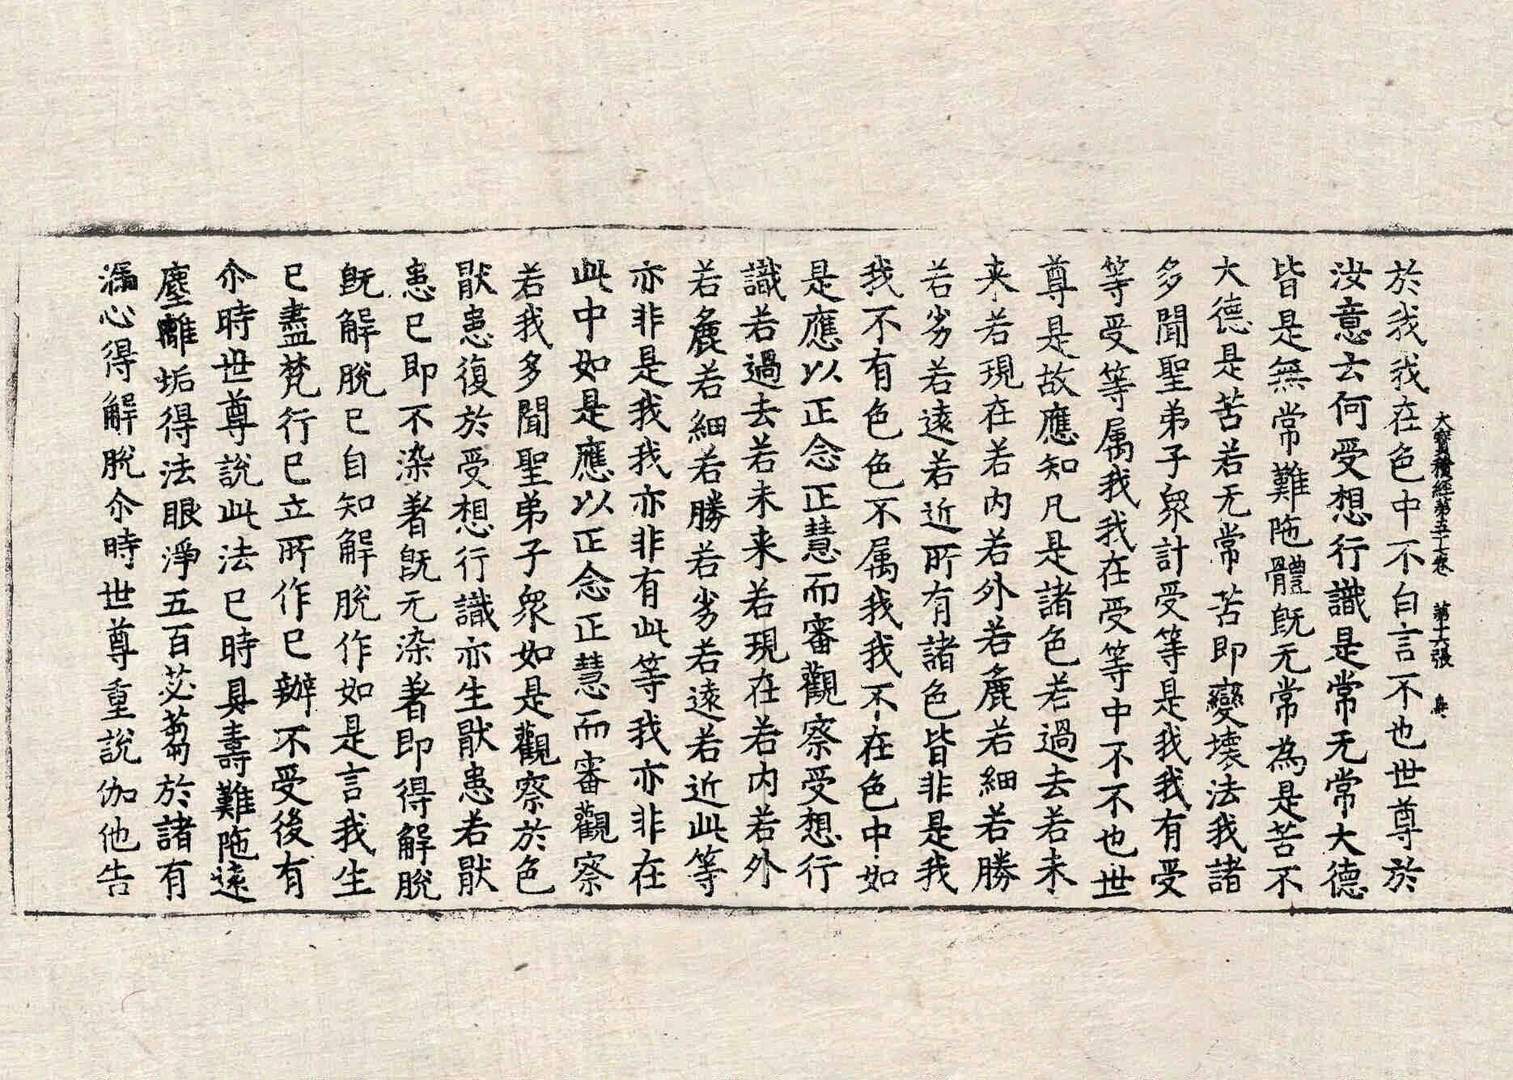 大寶積經第五十七卷　第十六張　鳥
於我我在色中不白言不也世尊於
汝意云何受想行識是常无常大德
皆是無常難陁體旣无常為是苦不
大德是苦若无常苦即變壞法我諸
多聞聖弟子衆計受等是我我有受
等受等属我我在受等中不不也世
尊是故應知凡是諸色若過去若未
来若現在若内若外若麁若細若勝
若劣若遠若近所有諸色皆非是我
我不有色色不属我我不在色中如
是應以正念正慧而審觀察受想行
識若過去若未来若現在若内若外
若麁若細若勝若劣若遠若近此等
亦非是我我亦非有此等我亦非在
此中如是應以正念正慧而審觀察
若我多聞聖弟子衆如是觀察於色
猒患復於受想行識亦生猒患若猒
患已即不染著旣无染著即得解脫
旣解脫已自知解脫作如是言我生
已盡梵行已立所作已辦不受後有
尒時世尊說此法已時具壽難陁遠
塵離垢得法眼淨五百苾芻於諸有
漏心得解脫尒時世尊重說伽他告